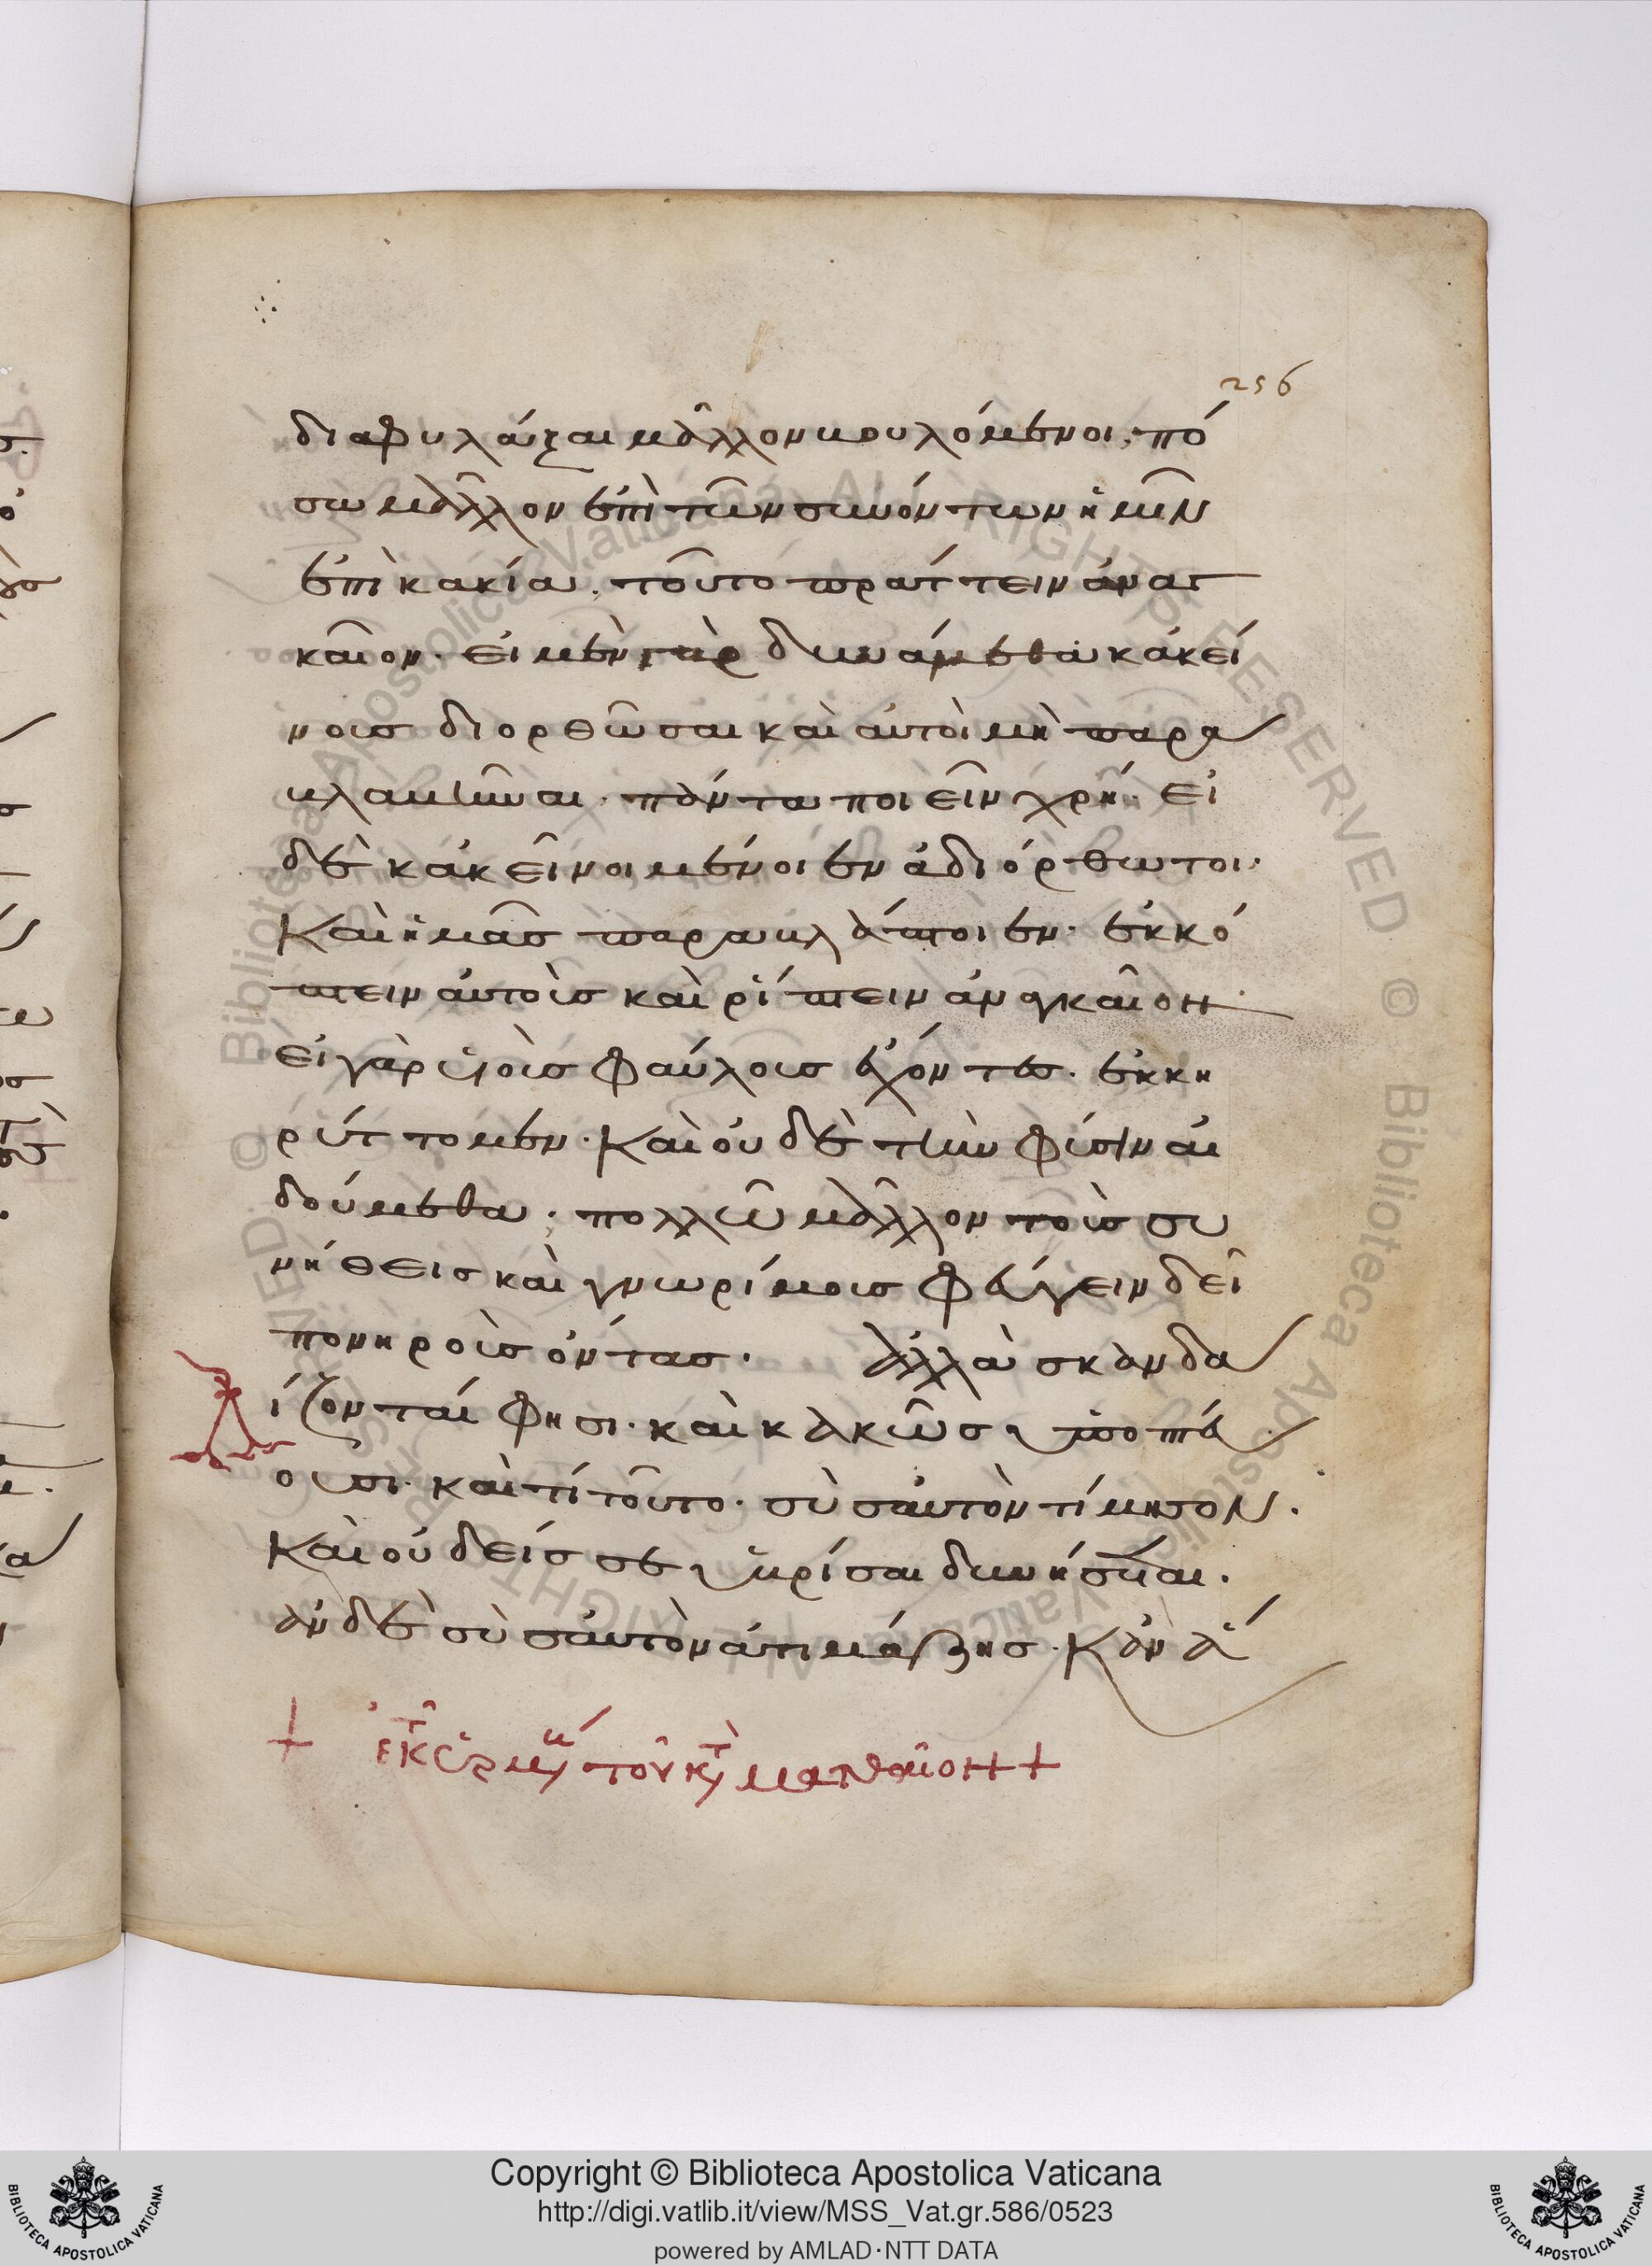 256
διαφυλάξαι μᾶλλον βουλόμενοι, πό
σω μᾶλλον ἐπὶ τῶν συνόντων ἡμῖν
ἐπὶ κακία, τοῦτο πράττειν ἀναγ
καῖον. εἰ μὲν γὰρ δυνάμεθα κἀκεί
νοις διορθῶσαι καὶ αὐτοὶ μὴ παρα
βλαβῆναι. πάντα ποιεῖν χρή. εἰ
δὲ κἀκεῖνοι μένοιεν ἀδιόρθωτοι.
καὶ ἡμᾶς παραβλάπτοιεν. ἐκκό
πτειν αὐτοὺς καὶ ρίπτειν ἀναγκαῖον.
εἰ γὰρ υἱοὺς φαύλους ἔχοντες. ἐκκη
ρύττομεν. καὶ οὐδὲ τὴν φύσιν αἰ
δούμεθα. πολλῶ μᾶλλον τοὺς συ
νήθεις καὶ γνωρίμους φεύγειν δεῖ
πονηροὺς ὄντας. ἀλλὰ σκανδα
λίζονταί φησι. καὶ κακῶς ὑποπτεύ
ουσι. καὶ τί τοῦτο. σὺ σαυτὸν τίμησον.
καὶ οὐδείς σε ὑβρίσαι δυνήσεται.
ἂν δὲ σὺ σαυτὸν ἀτιμάζης. κἂν ἅ
+ ἐκ τῆς ἑρμηνείας τοῦ κατὰ ματθαῖον +
Copyright © Biblioteca Apostolica Vaticana
http://digi.vatlib.it/view/MSS_Vat.gr.586/0523
powered by AMLAD·NTT DATA
BIBLIOTECA APOSTOLICA VATICANA
BIBLIOTECA APOSTOLICA VATICANA